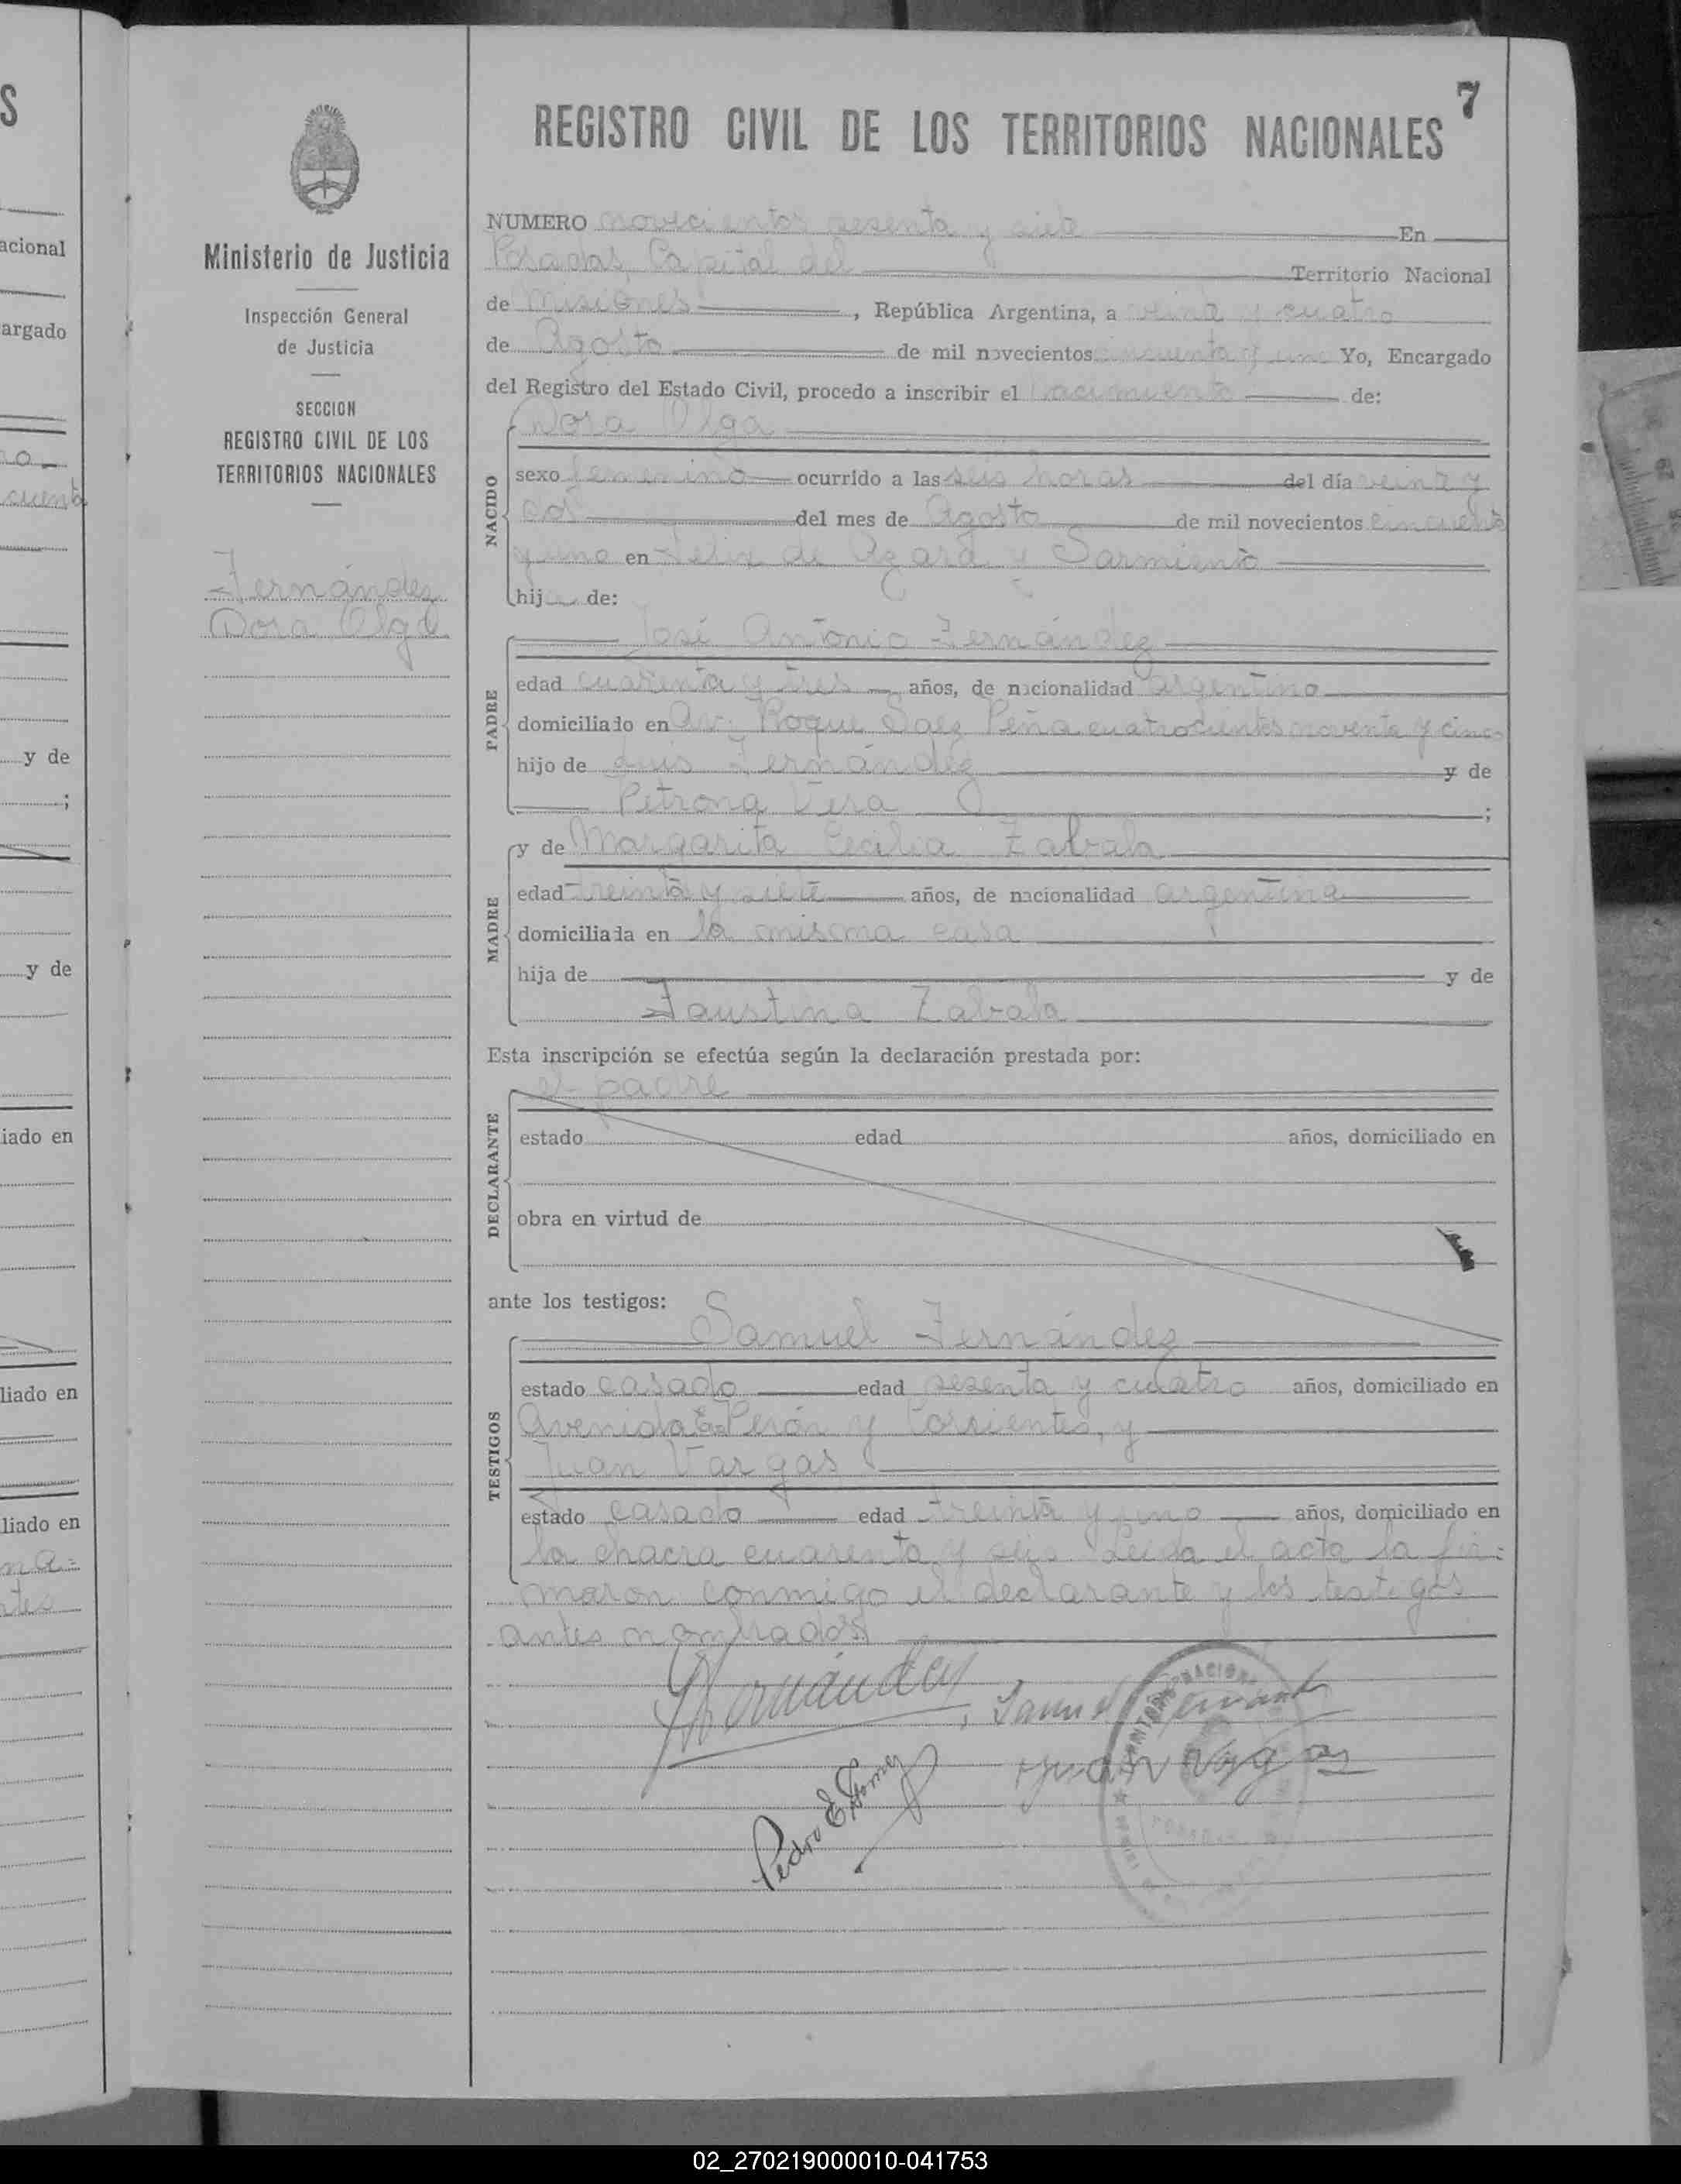 S
acional
argado
y de
;
y de
iado en
liado en
liado en
Ministerio de Justicia
Inspección General
de Justicia
SECCION
REGISTRO CIVIL DE LOS
TERRITORIOS NACIONALES
Fernández
Dora Olga
7
REGISTRO CIVIL DE LOS TERRITORIOS NACIONALES
NUMERO novecientos sesenta y siete En
Posadas Capital del Territorio Nacional
de Misiones, República Argentina, a veinte y cuatro
de Agosto de mil novecientos cincuenta y uno Yo, Encargado
del Registro del Estado Civil, procedo a inscribir el nacimiento de:
NACIDO
Dora Olga
sexo femenino ocurrido a las seis horas del día veinte y
dos del mes de Agosto de mil novecientos cincuenta
y uno en Félix de Azara y Sarmiento
hija de:
PADRE
José Antonio Fernández
edad cuarenta y tres años, de nacionalidad argentino
domiciliado en Av. Roque Saez Peña cuatrocientos noventa y cinco
hijo de Luis Fernández y de
Petrona Vera ;
MADRE
y de Margarita Cecilia Zabala
edad treinta y siete años, de nacionalidad argentina
domiciliada en la misma casa
hija de y de
Faustina Zabala
Esta inscripción se efectúa según la declaración prestada por:
DECLARANTE
el padre
estado edad años, domiciliado en
obra en virtud de
ante los testigos:
TESTIGOS
Samuel Fernández
estado casado edad sesenta y cuatro años, domiciliado en
Avenida E. Perón y Corrientes, y
Juan Vargas
estado casado edad treinta y uno años, domiciliado en
la chacra cuarenta y seis. Leída el acta la fir=
maron conmigo el declarante y los testigos
antes nombrados
Fernández, Samuel Fernández
Juan Vargas
Pedro E. Gomez
02_270219000010-041753